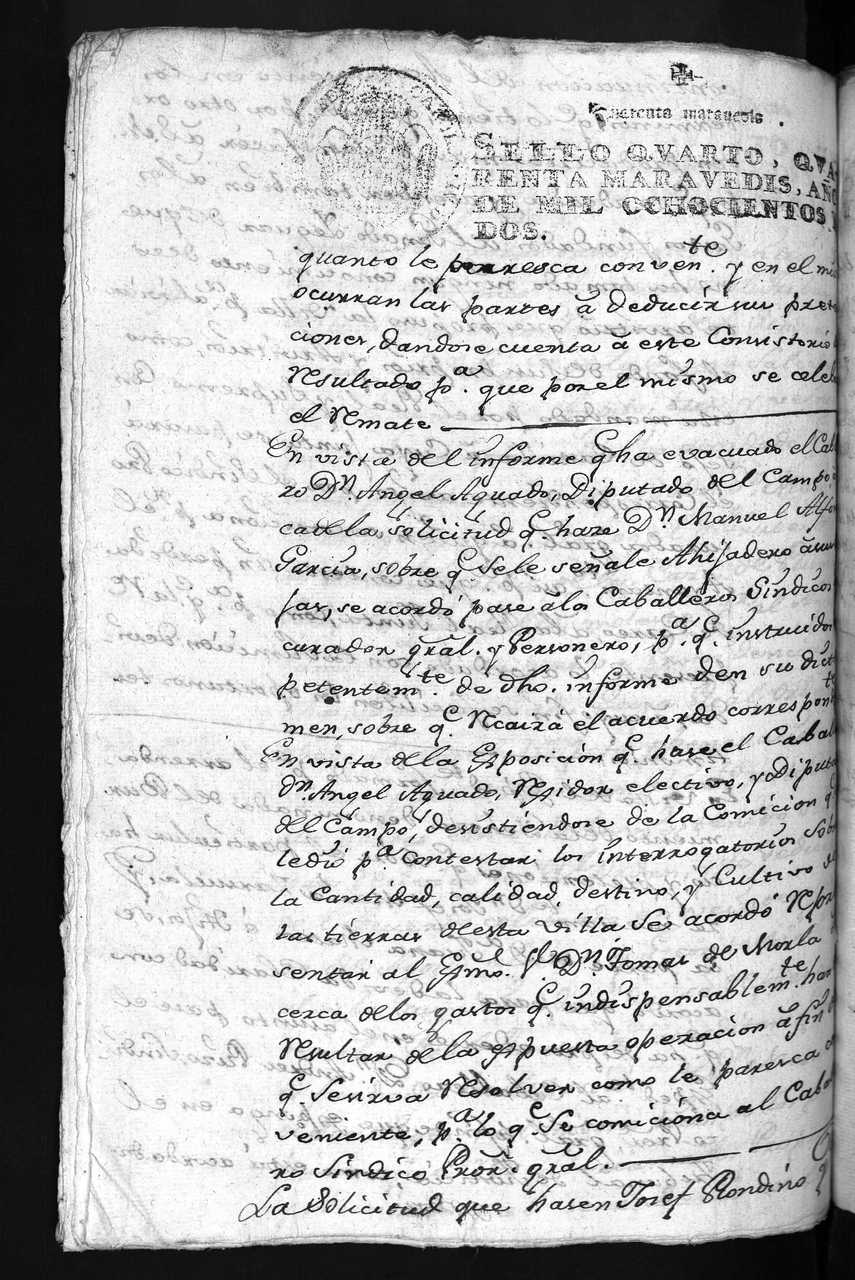 Quarenta maravedis.
SELLO QVARTO, QVA
RENTA MARAVEDIS, AÑO
DE MIL OCHOCIENTOS Y
DOS.
quanto le paresca convente. y en el mis
ocurran las partes á deducir su prete
ciones, dandose cuenta á este Consistorio
Resultado pa. que por el mismo se celeb
el Remate
En vista del informe q ha evacuado el Cab
ro Dn. Angel Aguado, Diputado del Campo
ca de la solicitud q. hase Dn. Manuel Alfo
Garcia, sobre q. se le señale Ahijadero á sus
jas, se acordó pase a los Caballeros Sindicos
curador gral. y Personero, pa. q. instruidos
petentemte. de dho. informe den su dict
men, sobre q. Recairá el acuerdo correspondte
En vista de la Exposicion q. hase el Cabal
dn. Angel Aguado, Regidor electivo, y Diputa
del Campo, desistiendose de la Comicion q.
le dió pa. contestar los interrogatorios sob
la Cantidad, calidad, destino, y Cultivo de
las tierras de esta villa se acordó Repre
sentar al Exmo. Sr. Dn. Tomas de Morla
cerca de los gastos q. indispensablemte. han
Resultar de la expuesta operacion á fin
q. Se sirva Resolver como le paresca co
veniente, pa. lo q. Se comiciona al Cabal
ro Sindico Pror. gral.
La Solicitud que hasen Josef Rondino